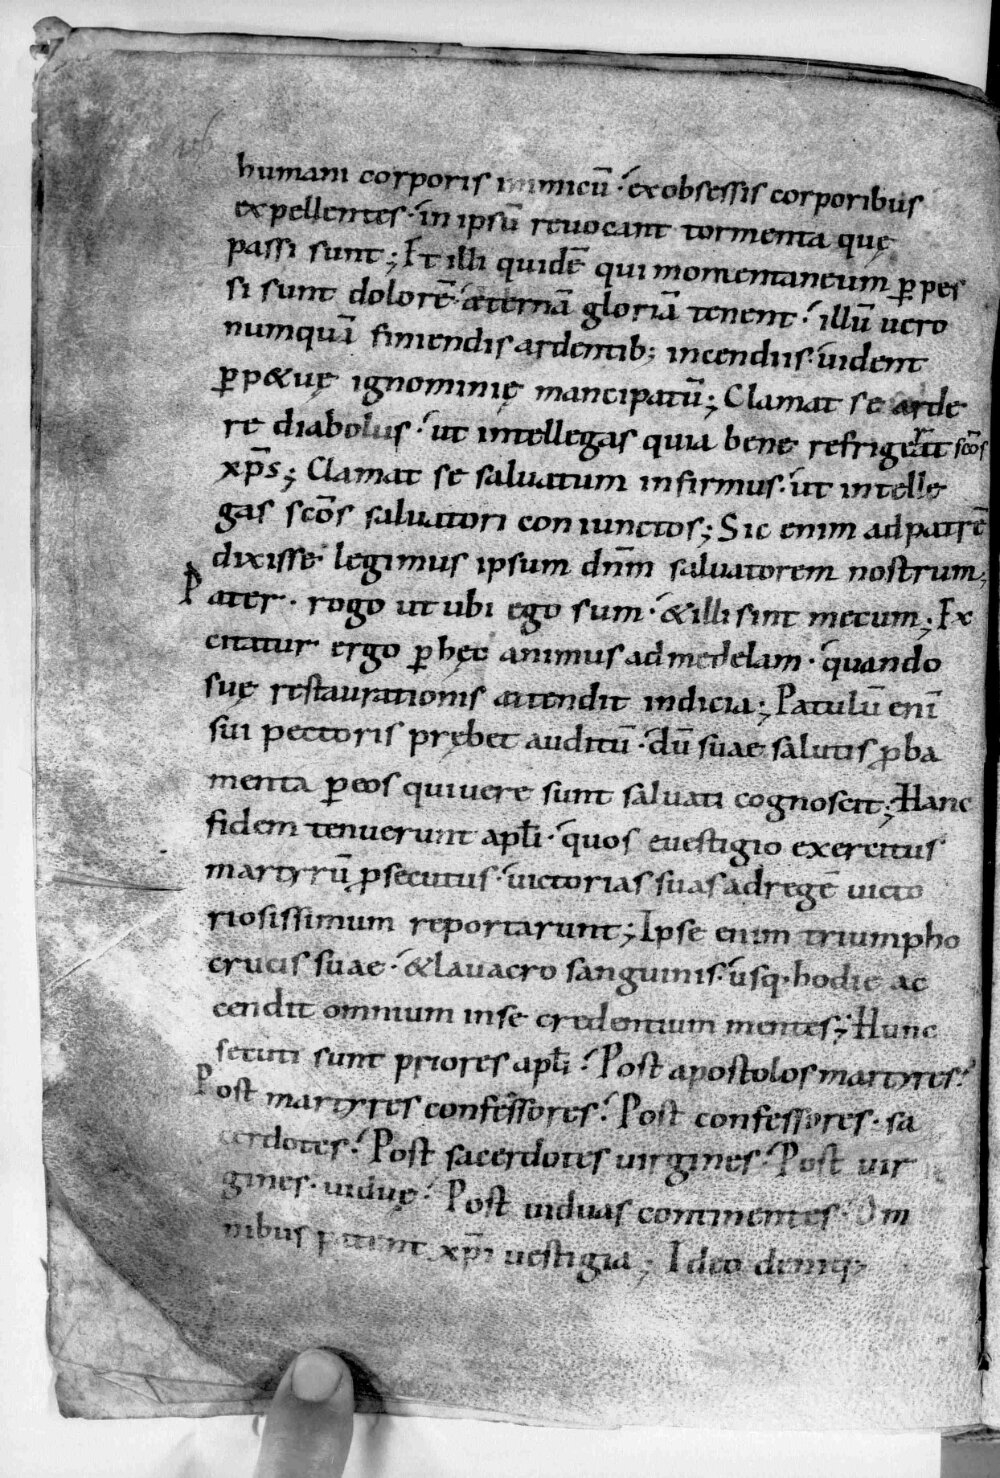 humani corporis inimicū · exobsessis corporibus
expellentes · in ipsū reuocant tormenta quę
passi sunt ; Et illi quidē qui momentaneum ꝑpes
si sunt dolorē · æternā gloriā tenent · illū uero
numquā finiendis ardentib; incendiis · uident
ꝑp&uę ignominię mancipatū ; Clamat se arde
re diabolus · ut intellegas quia bene refrigerat scōs
xp̄s ; Clamat se saluatum infirmus · ut intelle
gas scōs saluatori coniunctos ; Sic enim ad patrē
dixisse legimus ipsum dn̄m saluatorem nostrum ;
Pater · rogo ut ubi ego sum · & illi sint mecum ; Ex
citatur ergo ꝑ hęc animus ad medelam · quando
suę restaurationis attendit indicia ; Patulū enī
sui pectoris prębet auditū · dū suae salutis ꝓba
menta ꝑ eos qui uere sunt saluati cognoscit ; Hanc
fidem tenuerunt apłi · quos euestigio exercitus
martyrū ꝓsecutus · uictorias suas ad regē uicto
riosissimum reportarunt ; Ipse enim triumpho
crucis suae · & lauacro sanguinis · usq· hodie ac
cendit omnium in se credentium mentes ; Hunc
secuti sunt priores apłi · Post apostolos martyres ·
Post martyres confessores · Post confessores · sa
cerdotes · Post sacerdotes uirgines · Post uir
gines · uiduę · Post uiduas continentes · Om
nibus patent xp̄i uestigia ; Ideo deniq·